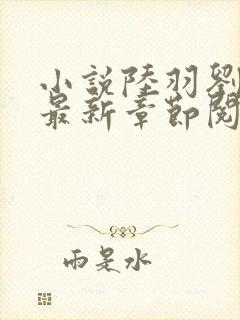 小說陸羽劉
最新章節閱
雨是水